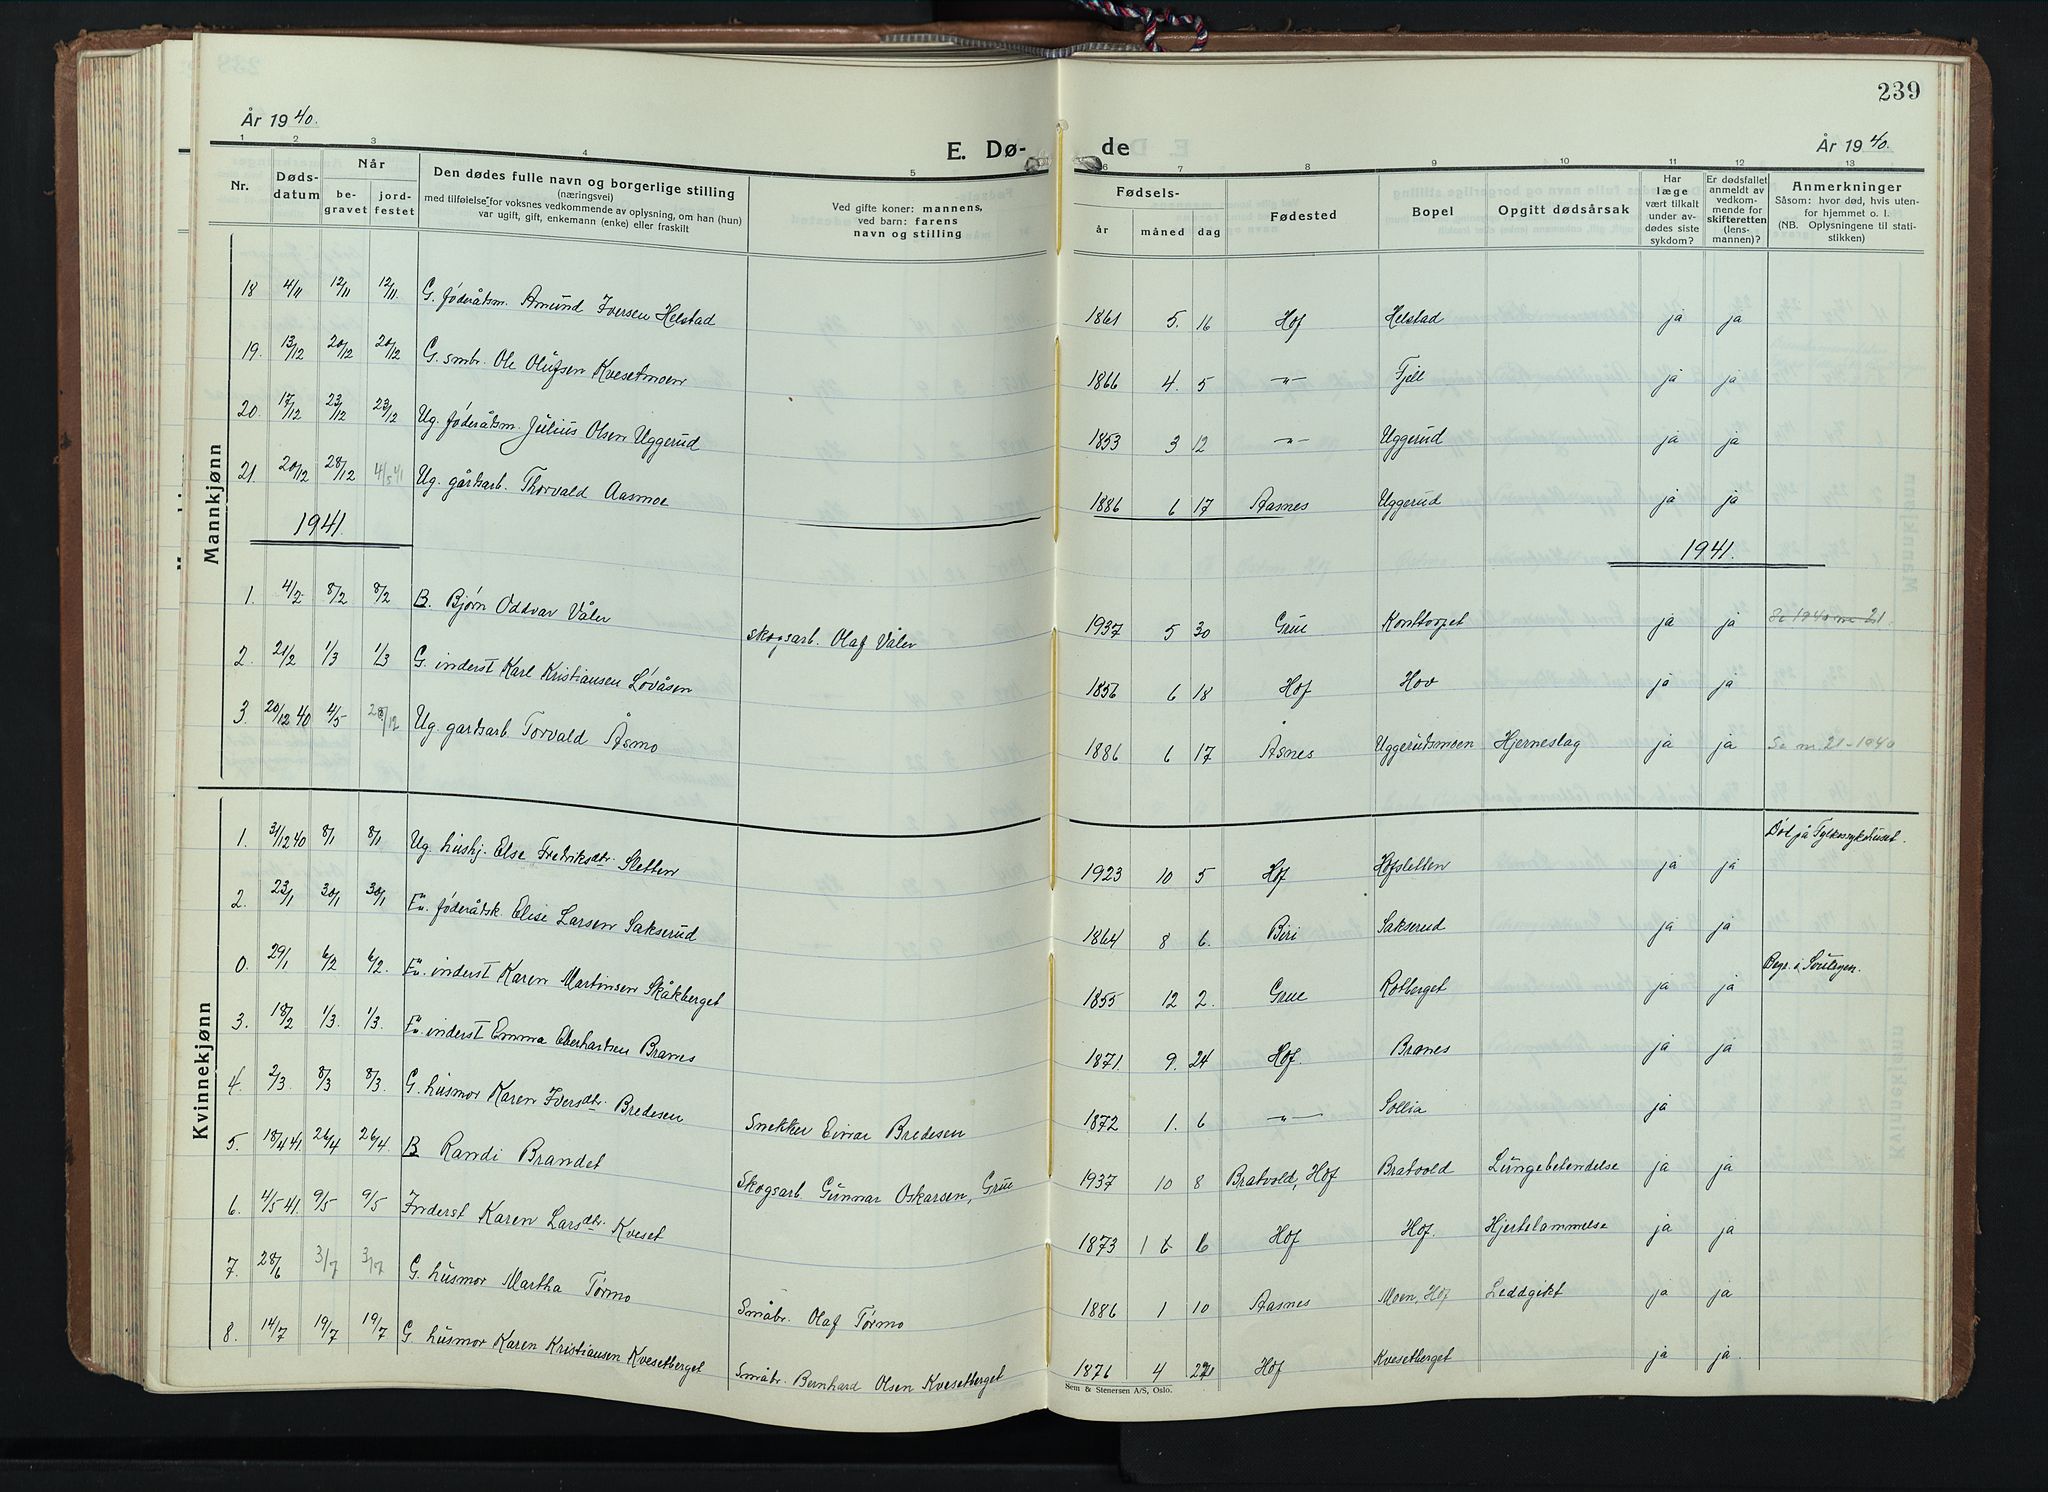 239
År 1940.
E. Dø-
de
År 1940.
1 2 3 4 5 6 7 8 9 10 11 12 13
Nr.
Døds-
datum
Når
be-
gravet
jord-
festet
Den dødes fulle navn og borgerlige stilling
(næringsvei)
med tilføielse for voksnes vedkommende av oplysning, om han (hun)
var ugift, gift, enkemann (enke) eller fraskilt
Ved gifte koner: mannens,
ved barn: farens
navn og stilling
Fødsels-
år
måned
dag
Fødested
Bopel
Opgitt dødsårsak
Har
læge
vært tilkalt
under av-
dødes siste
sykdom?
Er dødsfallet
anmeldt av
vedkom-
mende for
skifteretten
(lens-
mannen)?
Anmerkninger
Såsom: hvor død, hvis uten-
for hjemmet o. l.
(NB. Oplysningene til stati-
stikken)
Mannkjønn
18 4/11 12/11 12/11. G. føderåtsm. Amund Iversen Helstad 1861 5. 16 Hof Helstad ja ja
19. 13/12 20/12 20/12 G. smbr. Ole Olufsen Kvesetmoen 1866 4. 5 -"- Fjell ja ja
20. 17/12 23/12 23/12 Ug. føderåtsm. Julius Olsen Uggerud 1853 3 12 -"- Uggerud ja ja
21. 20/12 28/12 4/5 41 Ug. gårdsarb. Thorvald Aasmoe 1886 6 17 Aasnes Uggerud ja ja
1941. 1941.
1. 4/2 8/2 8/2 B. Bjørn Oddvar Våler skogsarb. Olaf Våler 1937 5 30 Grue Konttorpet ja ja Se 1940 nr 21.
2. 21/2 1/3 1/3 G. inderst Karl Kristiansen Løvåsen 1856 6 18 Hof Hov ja ja
3. 20/12 40 4/5 28/12 Ug. gardsarb. Torvald Åsmo 1886 6 17 Åsnes Uggerudsmoen Hjerneslag ja ja Se nr. 21 - 1940
Kvinnekjønn
1. 31/12 40 8/1 8/1 Ug. hushj. Else Fredriksdtr. Sletten 1923 10 5 Hof Hofsletten ja ja Død på Fylkessykehuset.
2. 23/1 30/1 30/1 En. føderåtsk. Elise Larsen Sakserud 1864 8 6. Biri Sakserud ja ja
0. 29/1 6/2 6/2. En. inderst Karen Martinsen Skåkberget 1855 12 2. Grue Rotberget ja ja Begr. i
3. 18/2 1/3. 1/3. En. inderst Emma Eberhardsen Branes 1871. 9. 24 Hof. Branes ja ja
4. 2/3. 8/3 8/3. G. husmor Karen Iversdtr. Bredesen Snekker Einar Bredesen 1872 1. 6 -"- Sollia ja
5. 18/4 41. 26/4 26/4. B Randi Brandet Skogsarb Gunnar Oskarsen, Grue 1937 10 8 Bratvold, Hof Bratvold Lungebetendelse ja ja
6. 4/5 41. 9/5 9/5 Inderst Karen Larsdtr. Kveset 1873 1 6 Hof Hof. Hjertelammelse ja ja
7. 28/6 3/7 3/7 G. husmor Martha Tørmo Småbr. Olaf Tørmo 1886 1 10 Aasnes Moen, Hof Leddgikt ja ja
8. 14/7 19/7 19/7 G. husmor Karen Kristiansen Kvesetberget Småbr. Bernhard Olsen Kvesetberget 1876 4 Hof Kvesetberget ja ja.
Sem & Stenersen A/S, Oslo.